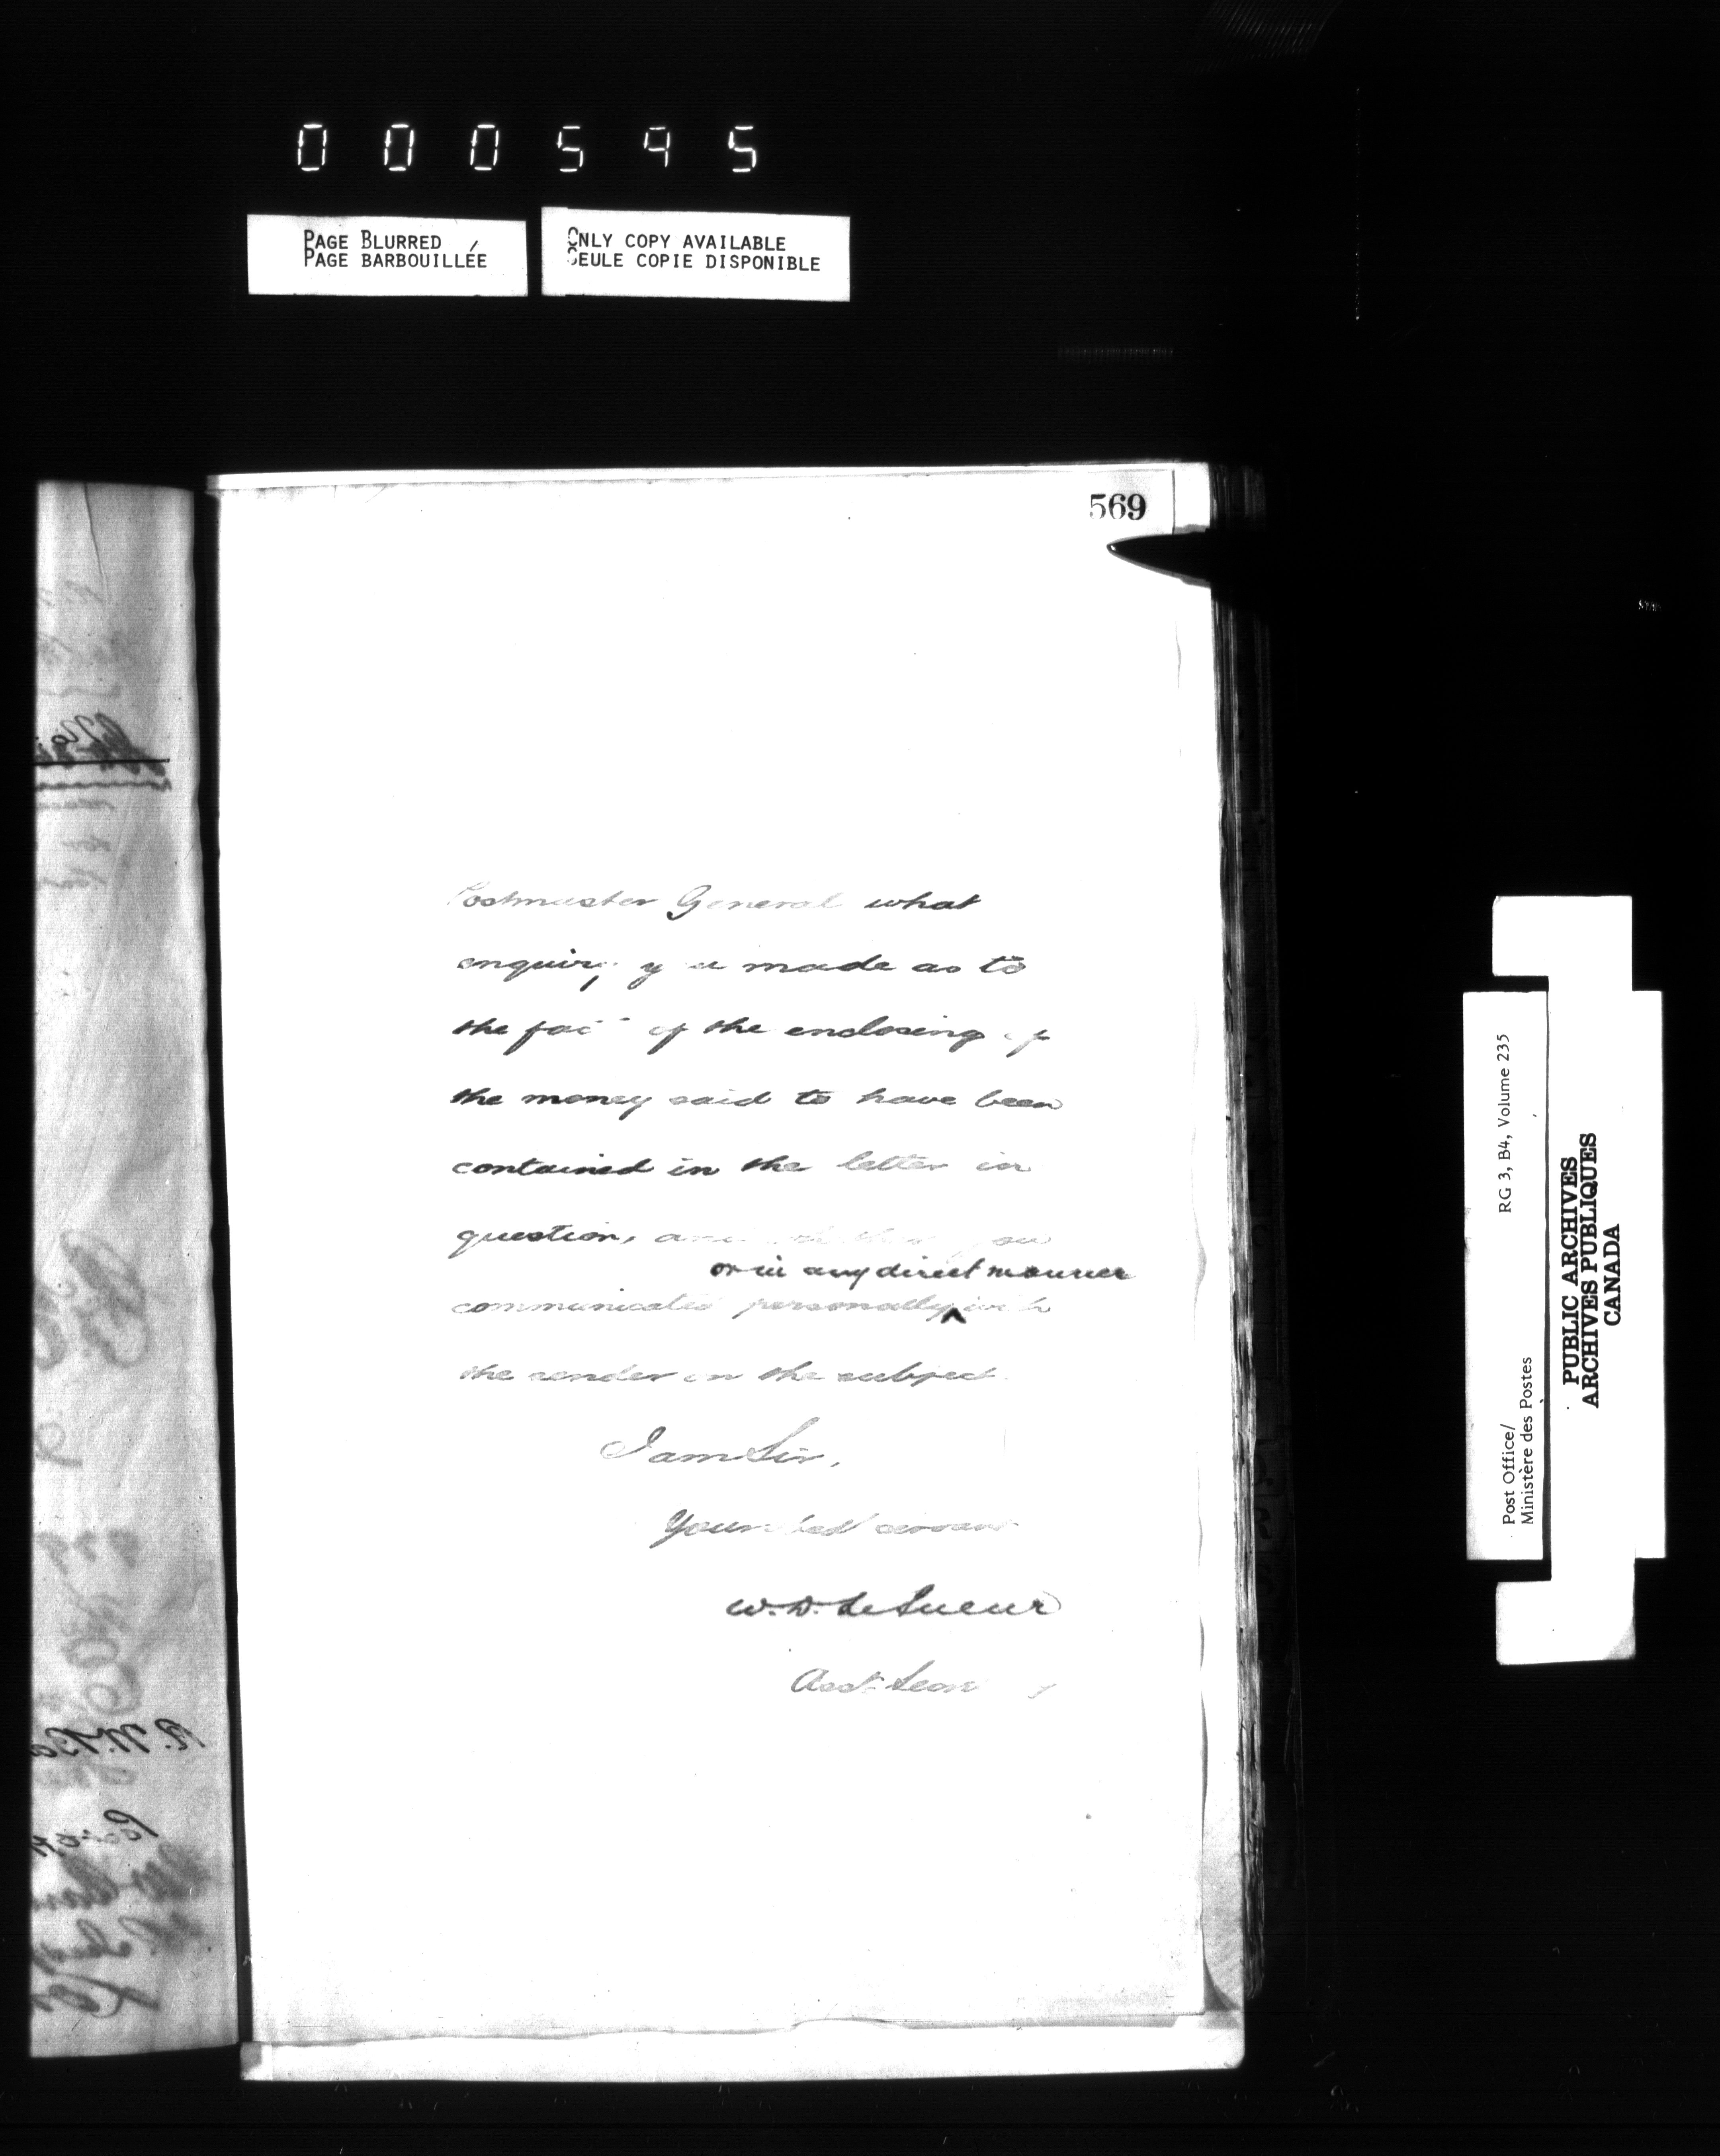 000595
PAGE BLURRED
PAGE BARBOUILLÉE
ONLY COPY AVAILABLE
SEULE COPIE DISPONIBLE
569
Postmaster General what
enquiry you made as to
the fact of the enclosing of
the money said to have been
contained in the letter in
question, and whether you
or in any direct manner
communicated personally ^ with
the sender on the subject.
I am Sir,
Your obed servant
W. D. LeSueur
Asst. Secretary
RG 3, B4, Volume 235
Post Office/
Ministère des Postes
PUBLIC ARCHIVES
ARCHIVES PUBLIQUES
CANADA